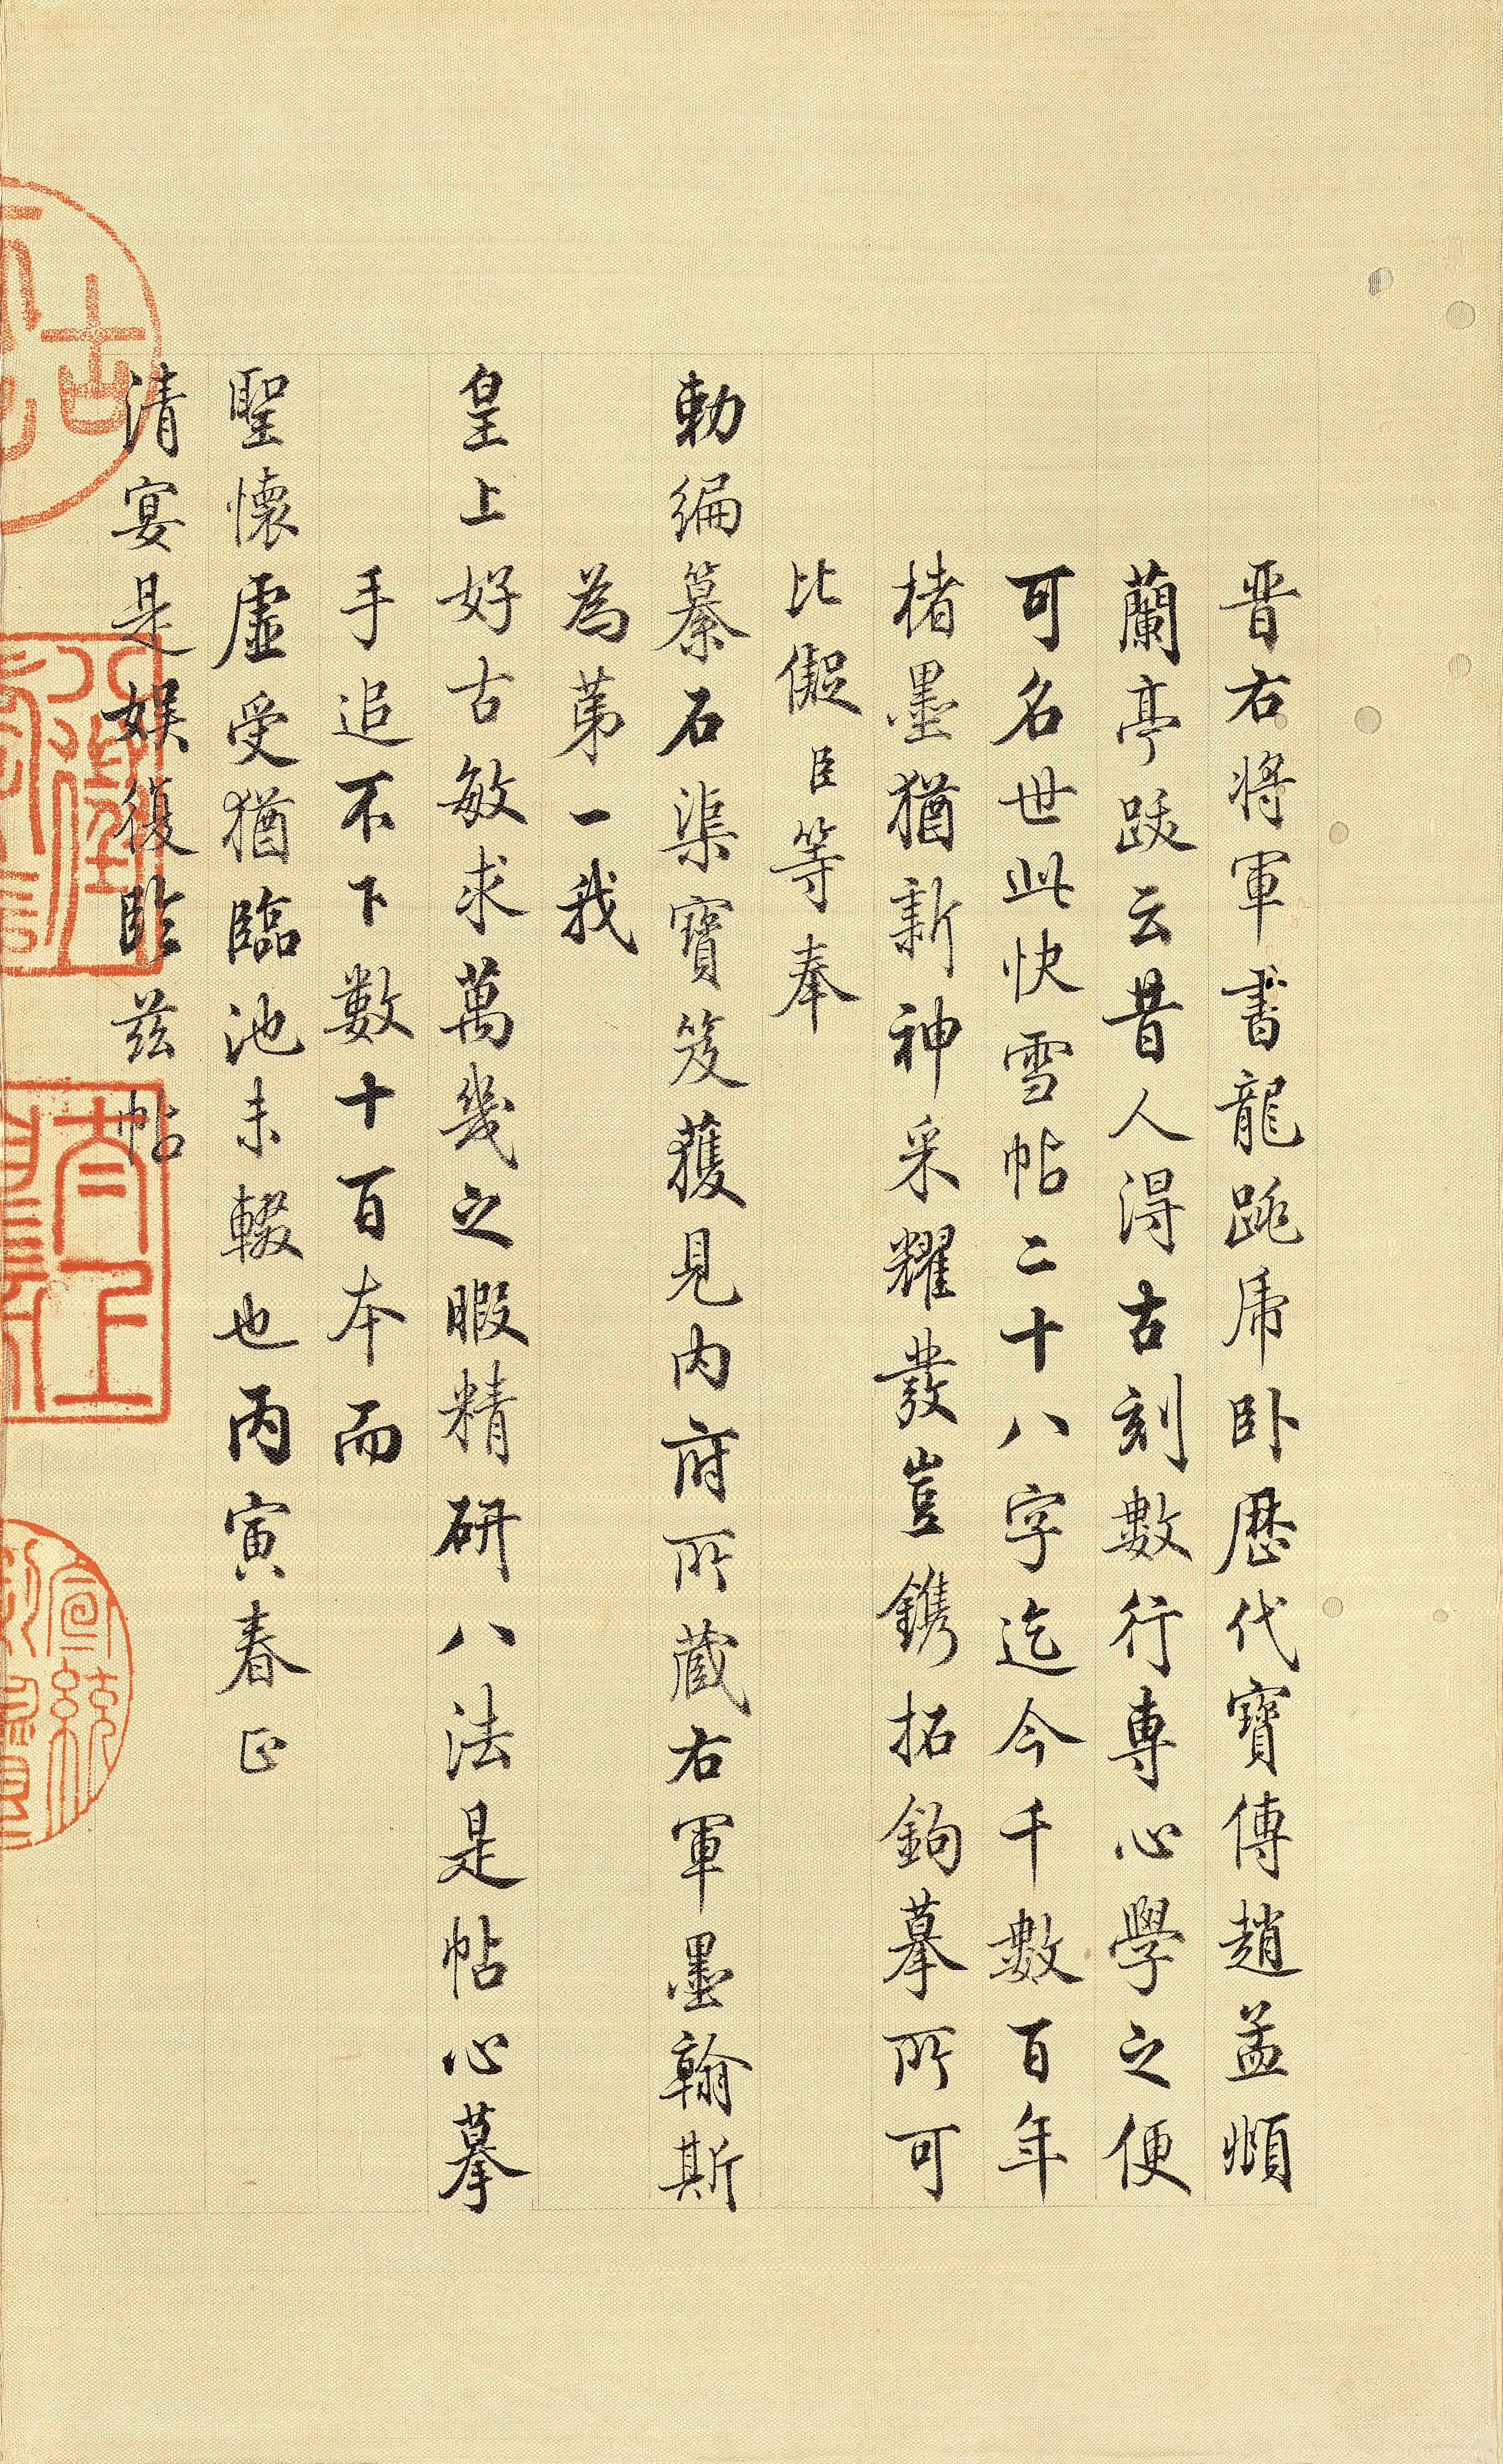 晋右將軍書龍跳虎卧歷代寶傳趙孟頫
蘭亭跋云昔人得古刻數行專心學之便
可名世此快雪帖二十八字迄今千數百年
楮墨猶新神采耀發豈鐫拓鉤摹所可
比儗臣等奉
勅編纂石渠寶笈獲見內府所蔵右軍墨翰斯
為苐一我
皇上好古敏求萬幾之暇精研八法是帖心摹
手追不下數十百本而
聖懷虛受猶臨池未輟也丙寅春正
清宴是娛復臨茲帖
太上
宣統